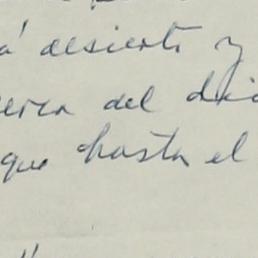 á desierto y
cerca del
que hasta el